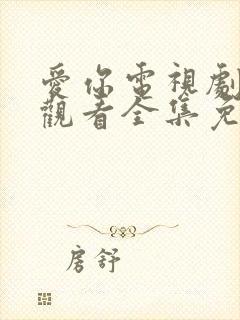 愛你電視劇
觀看全集免
房舒